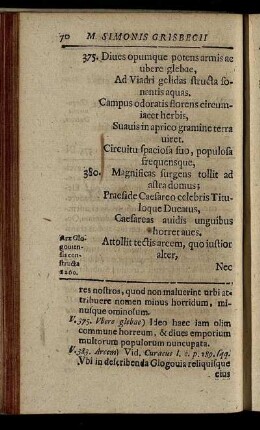 70 M. SIMONIS GRISBECII
375. Diues opumque potens armis ac
ubere glebae,
Ad Viadri gelidas structa so-
nentis aquas.
Campus odoratis florens circum-
iacet herbis,
Suauis in aprico gramine terra
uiret.
Circuitu spaciosa suo, populosa
frequensque,
380. Magnificas surgens tollit ad
astra domus;
Praeside Caesareo celebris Titu-
loque Ducatus,
Caesareas auidis unguibus
horret aues.
Arx Glo-
gouien-
sis con-
structa
1260.
Attollit tectis arcem, quo iustior
alter,
Nec
res nostros, quod non maluerint urbi at-
tribuere nomen minus horridum, mi-
nusque ominosum.
V. 375. Vbere glebae) Ideo haec iam olim
commune horreum, & diues emporium
multorum populorum nuncupata.
V. 383. Arcem) Vid. Curaeus l. c. p. 289. sqq.
Vbi in describenda Glogouia reliquisque
eius